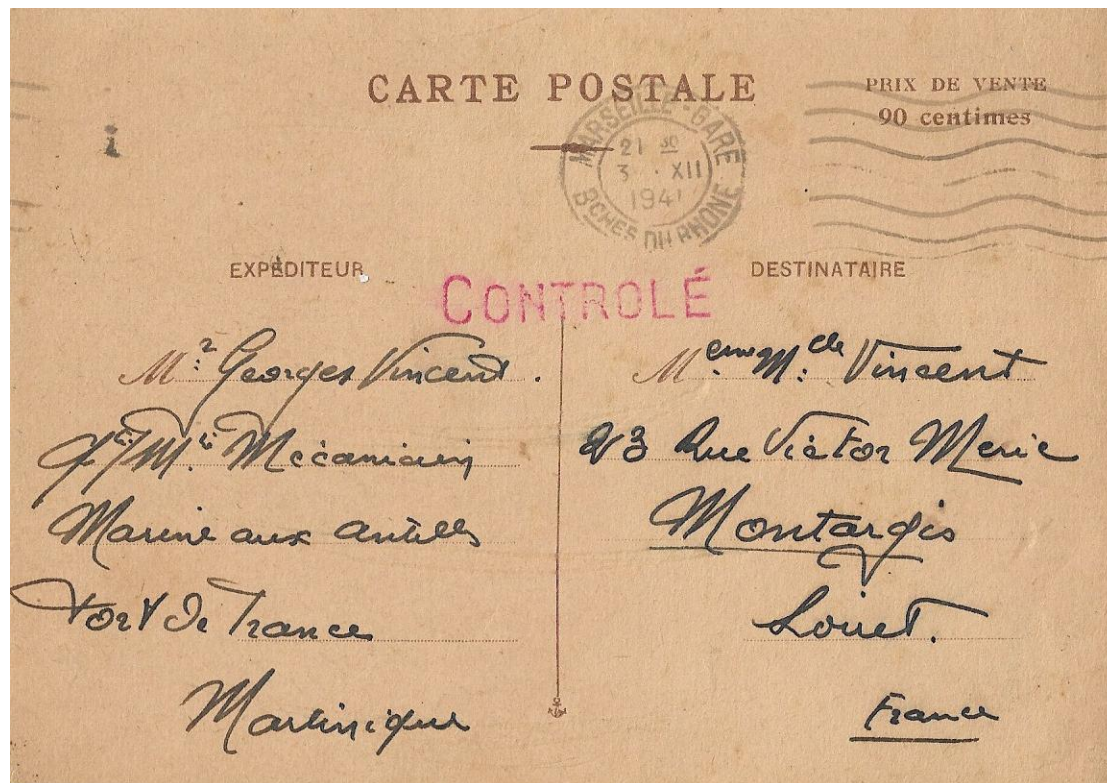 CARTE POSTALE
PRIX DE VENTE
90 centimes
i
MARSEILLE-GARE
21 30
3 XII
1941
BCHES DU RHONE
EXPÉDITEUR
CONTROLÉ
DESTINATAIRE
Mr Georges Vincent.
Mécanicien
Marine aux antilles
Fort De France
Martinique
Meme Mcle Vincent
23 Rue Victor Meric
Montargis
Loiret.
France